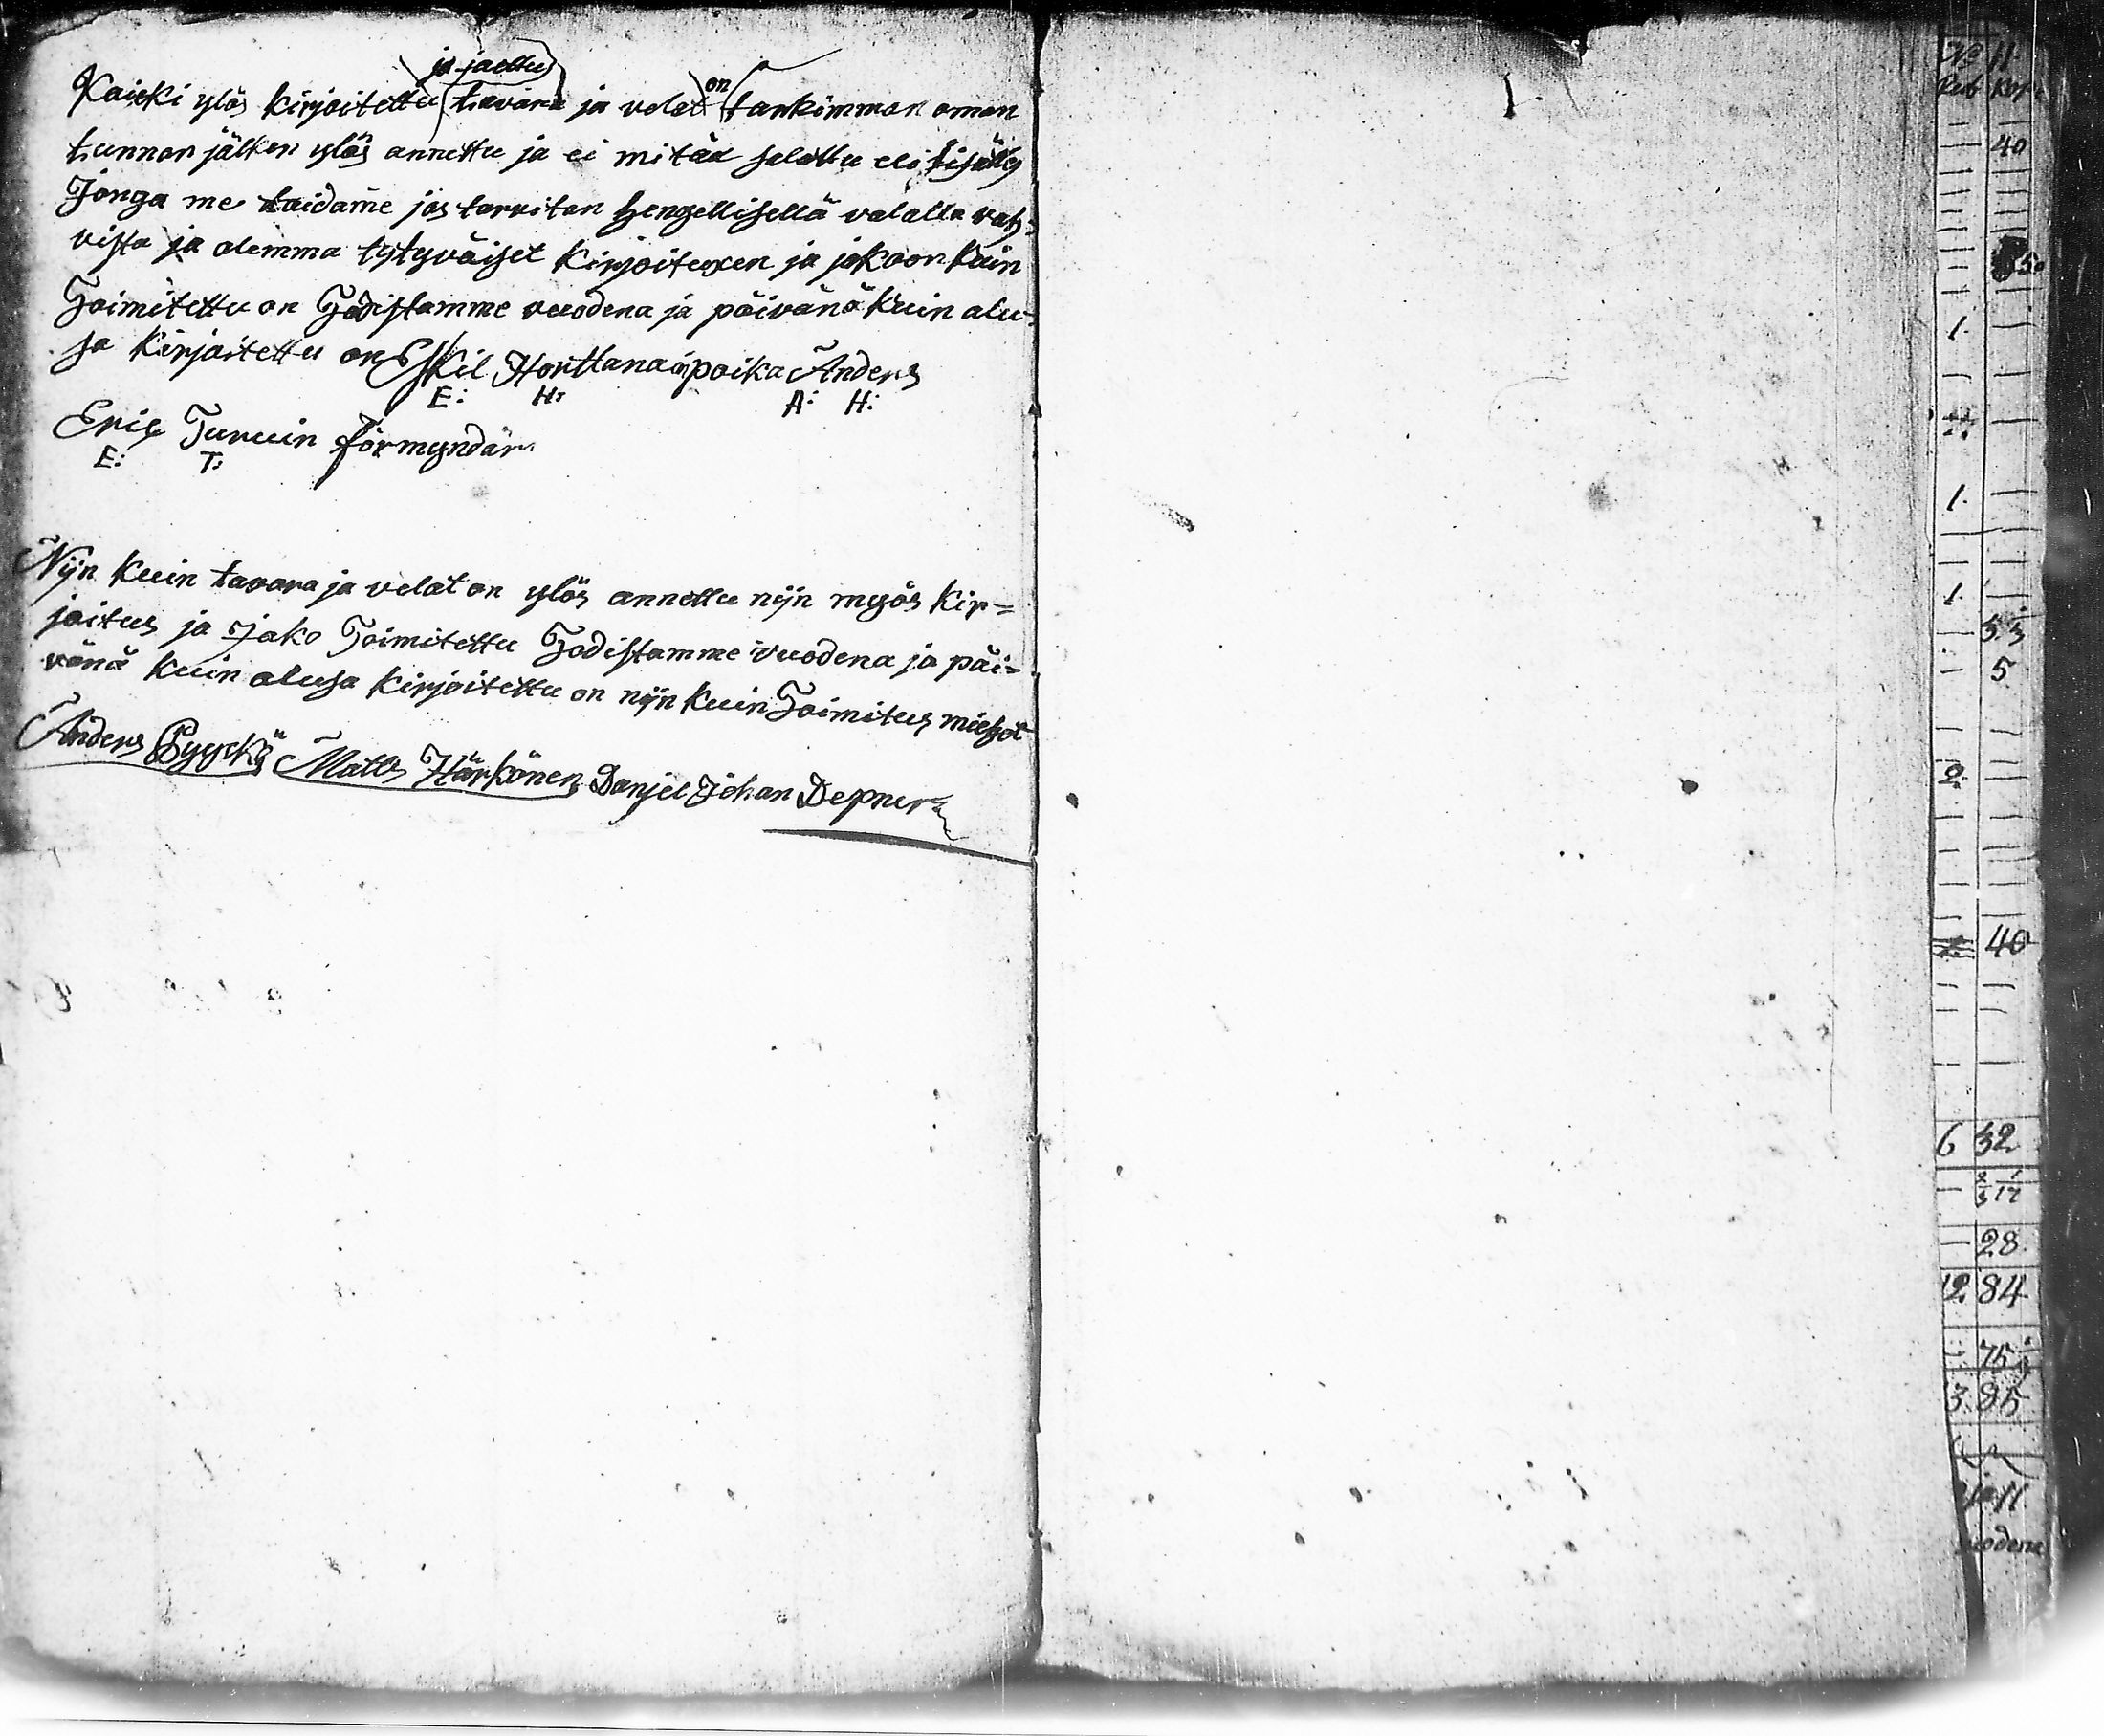 ja jaettu
Kaicki ylös kirjoitettu tavara ja velat on tarkimman oman
tunnon jälken ylös annettu ja ei mitää salattu eli lisätty
Jonga me taidame jos tarvitan Hengellisellä valalla vah=
vista ja olemma tytyväiset kirjoituxen ja jakoon kuin
Toimitettu on Todistamme vuodena ja päivänä kuin alu=
sa kirjoitettu on Eskil Horttanain poika Anders
E: H: A: H:
Eric Turuin förmyndär
E: T:
Nijn kuin tavara ja velat on ylös annettu nijn myös kir=
joitus ja Jako Toimitettu Todistamme vuodena ja päi=
vänä kuin alusa kirjoitettu on nijn kuin Toimitus miehet
Anders Pyyckö Matts Härkönen Danjel Johan Depner
1.
No 11.
Rub Kop
— 40
50
1. —
1. —
1. —
— 5
2. —
40
6 32
— 28.
12 84
3. 85
uodena